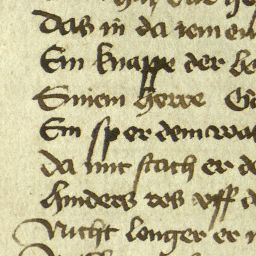 Das in da iem en
Ein knappe der be
Sinem herre Ga
Ein sper dem wa
Da mit stach er de
Hinders ros vff d
Nicht lenger er